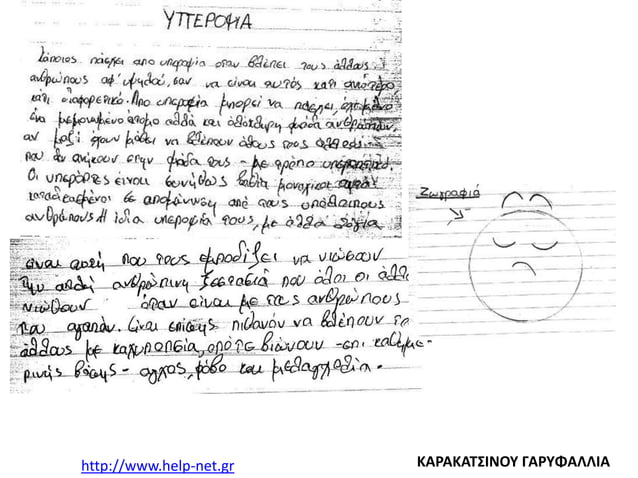 ΥΠΕΡΟΨΙΑ
Κάποιος πάσχει από υπεροψία όταν βλέπει τους άλλους
ανθρώπους αφ' υψηλού, σαν να είναι αυτός κάτι ανώτερο
κάτι διαφορετικό. Από υπεροψία μπορεί να πάσχει, όχι μόνο
ένα μεμονωμένο άτομο αλλά και ολόκληρη ομάδα ανθρώπων,
αν μαζί έχουν μάθει να βλέπουν όλους τους άλλους -
που δεν ανήκουν στην ομάδα τους - με τρόπο
Οι υπερόπτες είναι συνήθως βαθιά μοναχικά
καταδικασμένοι σε απομόνωση από τους υπόλοιπους
ανθρώπους. Η ίδια υπεροψία τους, με άλλα λόγια
είναι αυτή που τους εμποδίζει να νιώσουν
την απλή ανθρώπινη ζεστασιά που όλοι οι άλλοι
νιώθουν όταν είναι με τους ανθρώπους
που αγαπάν. Είναι επίσης πιθανόν να βλέπουν το
άλλους με καχυποψία, οπότε βιώνουν - επί καθημε-
ρινής βάσης - άγχος, φόβο και μελαγχολία.
Ζωγραφιά
http://www.help-net.gr
ΚΑΡΑΚΑΤΣΙΝΟΥ ΓΑΡΥΦΑΛΛΙΑ